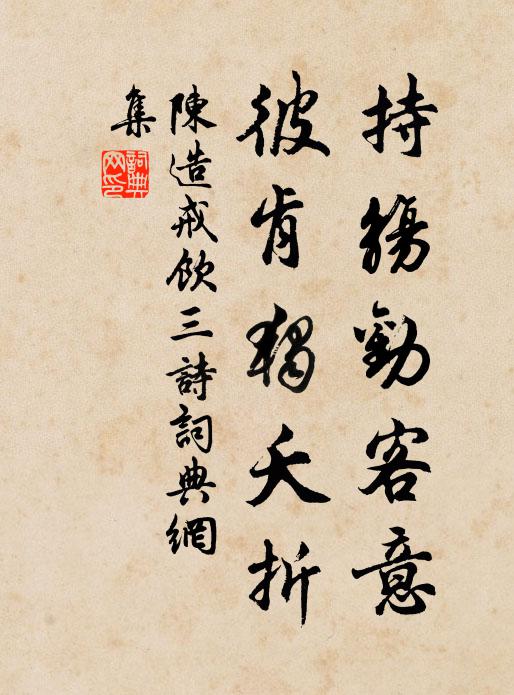 持觴勸客意
彼肯獨夭折
陳造戒飲三詩詞典網
集
詞典網印